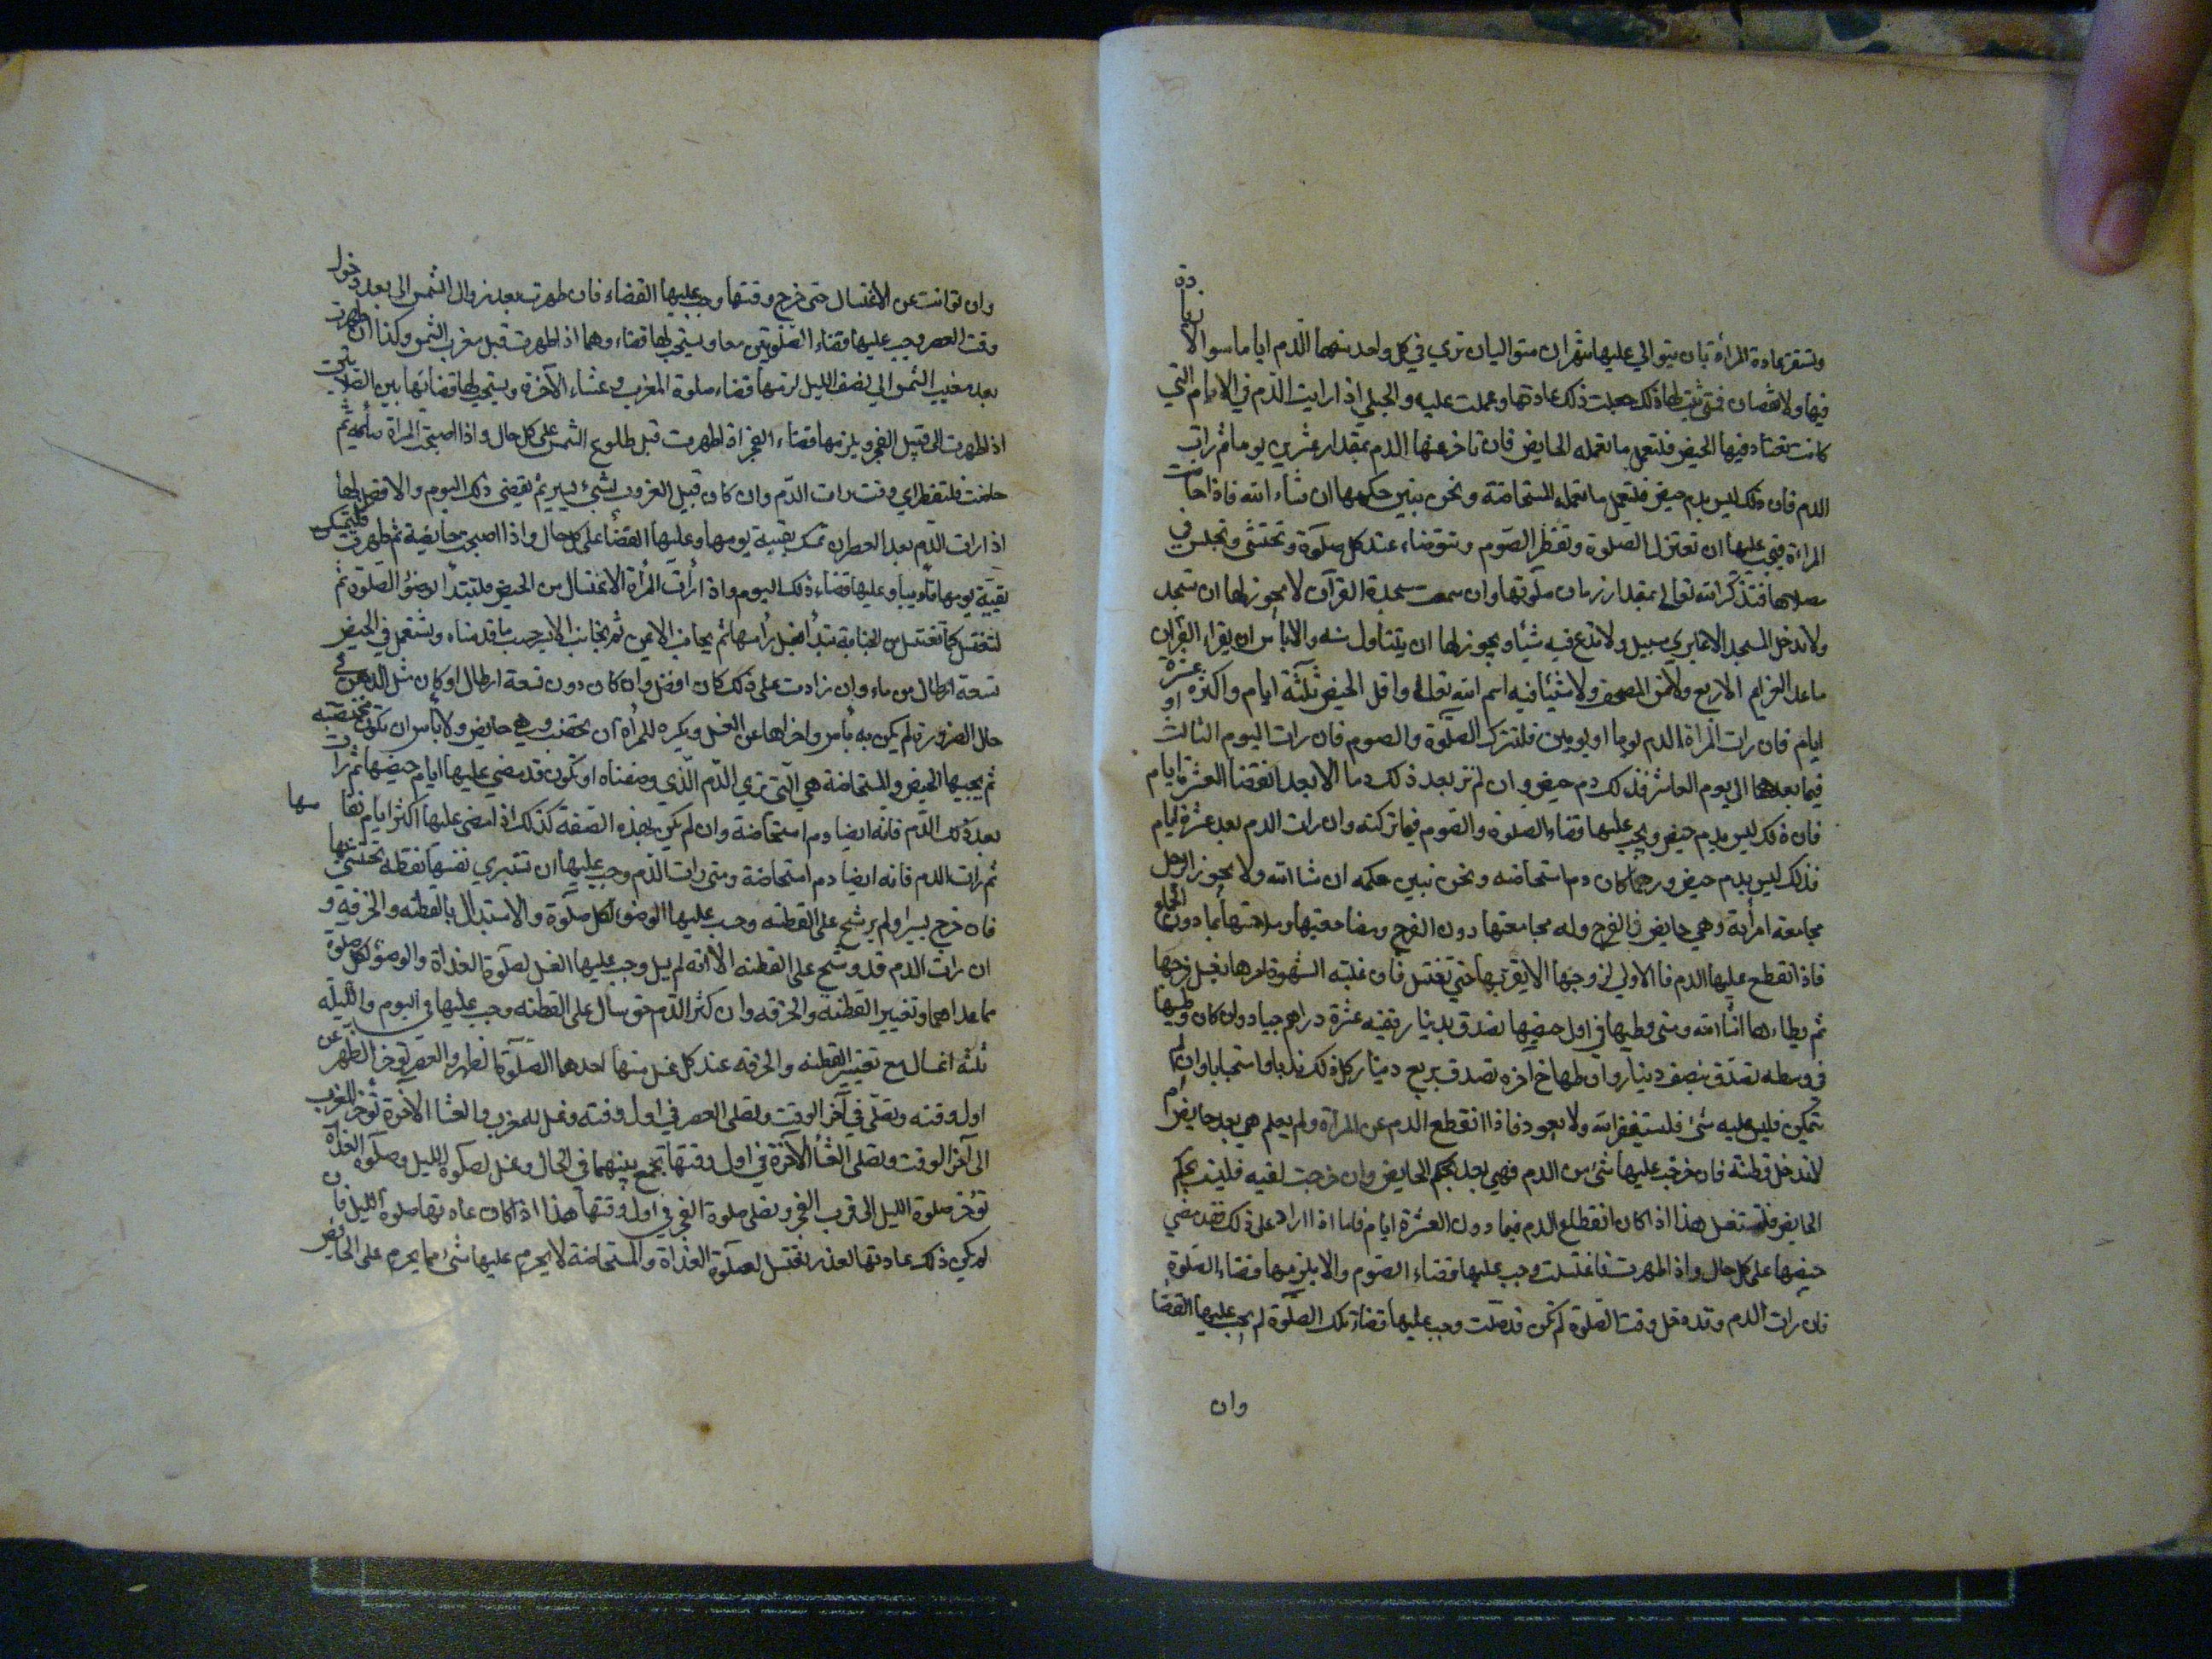 وتستقر عادة المرأة بان يتوالي عليها شهران متواليان تري في كل واحد منهما الدم اياما سوا لا زيادة
فيها ولا نقصان فمتي ثبت لها ذلك جعلت ذلك عادتها وعملت عليه والحبلي اذا رايت الدم في الايام التي
كانت تعتاد فيها الحيض فلتعمل ما تعمله الحايض فان تاخر عنها الدم بمقدار عشرين يوما ثم رات
الدم فان ذلك ليس بدم حيض فلتعمل ما تعمله المستحاضة ونحن نبين حكمها ان شاء الله فاذا حاضت
المراءة فيجب عليها ان تعتزل الصلوة وتفطر الصوم وتتوضاء عند كل صلوة وتحتشي وتجلس في
مصلاها فتذكر الله تعالي بمقدار زمان صلوتها وان سمعت سجدة القرآن لا يجوز لها ان تسجد
ولا تدخل المسجد الا عابري سبيل ولا تدع فيه شيئا ويجوز لها ان يتناول منه والا باس ان يقراء القرآن
ما عدا العزايم الاربع ولا تمس المصحف ولا شيئا فيه اسم الله تعالي واقل الحيض ثلثة ايام واكثره عشرة
ايام فان رات المراة الدم يوما او يومين فلتترك الصلوة والصوم فان رات اليوم الثالث او
فيما بعدهما الي يوم العاشر فذلك دم حيض وان لم تر بعد ذلك دما الا بعد انقضا العشرة ايام
فان ذلك ليس بدم حيض ويجب عليها قضاء الصلوة والصوم فيما تركته وان رات الدم بعد عشرة ايام
فذلك ليس بدم حيض وربما كان دم استحاضه ونحن نبين حكمه ان شا الله ولا يجوز للرجل
مجامعة امرأته وهي حايض في الفرج وله مجامعتها دون الفرج ومضاجعتها وملامستها بما دون الجماع
فاذا انقطع عليها الدم فا الاولي لزوجها الا يقربها حتي تغتسل فان غلبته الشهوة امرها بغسل فرجها
ثم يطاءها انشا الله ومتي وطيها في اول حيضها تصدق بدينار قيمته عشرة دراهم جياد وان كان وطيها
في وسطه تصدق بنصف دينار وان وطها في اخره تصدق بربع دينار كل ذلك ندبا واستحبابا وان لم
يتمكن فليس عليه شئ فلستغفر الله ولا يعود فاذا انقطع الدم عن المراة ولم يعلم هي بعد حايض ام
لا تدخل قطنة فان خرجت عليها شئ من الدم فهي بعد بحكم الحايض وان خرجت نقيه فليست بحكم
الحايض فلتستغسل هذا اذا كان انقطاع الدم فيما دون العشرة ايام فاما اذا اراد علي ذلك فقد مضي
حيضها على كل حال واذا طهرت فاغتسلت وجب عليها قضاء الصوم والا يلزمها قضاء الصلوة
فان رات الدم وقد دخل وقت الصلوة لم تكن قد صلت وجب عليها قضاء تلك الصلوة لم يجب عليها القضا
وان
وان توانت عن الاغتسال حتي خرج وقتها وجب عليها القضاء فان طهرت بعد زوال الشمس الي بعد دخول
وقت العصر وجب عليها قضاء الصلوتين معا ويستحب لها قضاء وهما اذا طهرت قبل مغرب الشمس وكذا ان طهرت
بعد مغيب الشمس الي نصف الليل لزمها قضاء صلوة المغرب وعشاء الآخرة ويستحب لها قضائها بين الصلاتين
اذا طهرت الي قبيل الفجر ويلزمها قضاء الفجر اذا طهرت قبل طلوع الشمس على كل حال واذا اصبحت المراة صائمه ثم
حاضت فلتفطر اي وقت رات الدم وان كان قبيل الغروب بشئ يسير ثم يقضي ذلك اليوم والافضل لها
اذا رات الدم بعد العصر ان تمسك بقية يومها وعليها القضاء على كل حال واذا اصبحت حايضة ثم طهرت فلتمسك
بقية يومها تأديبا وعليها قضاء ذلك اليوم واذا أرادت المرأة الاغتسال من الحيض فلتبتدأ الوضوء الصلوة ثم
لتغتسل كما تغتسل من الجنابة تبدأ بغسل رأسها ثم بجانب الايمن ثم بجانب الايسر حسب ما قدمناه وتستعمل في الحيض
تسعة ارطال من ماء وان زادت علي ذلك كان افضل وان كان دون تسعة ارطال او كان مثل الدهن في
حال الضرورة لم يكن به بأس واخر اها عن الغسل ويكره للمرأة ان تختضب وهي حايض ولا بأس ان تكون مختضبة
ثم يجيبها الحيض والمستحاضة هي التي تري الدم الذي وصفناه او تكون قد مضي عليها ايام حيضها ثم رات
بعد ذلك الدم فانه ايضا دم استحاضة وان لم يكن بهذه الصفة كذلك اذا مضي عليها اكثر ايام نفاسها
ثم رات الدم فانه ايضا دم استحاضة ومتي رات الدم وجب عليها ان تستبري نفسها بقطنه تحتشي بها
فان خرج يسيرا ولم يرشح على القطنه وجب عليها الوضوء لكل صلوة والاستبدال بالقطنه والخرقة و
ان رات الدم قد رشح على القطنه الا انه لم يسل وجب عليها الغسل لصلوة الغداة والوضوء لكل صلوة
مما عداهما وتغيير القطنه والخرقه وان كثر الدم حتي سأل على القطنه وجب عليها في اليوم والليله
ثلثه اغسال مع تغيير القطنه والخرقه عند كل غسل منها احدهما الصلوة الظهر والعصر تؤخر الظهر عن
اول وقته وتصلي في آخر الوقت وتصلي العصر في اول وقته وغسل للمغرب والعشا الآخرة تؤخر المغرب
الي آخر الوقت وتصلي العشا الآخرة في اول وقتها تجمع بينهما في الحال وغسل لصلوة الليل وصلوة الغداة
تؤخر صلوة الليل الي قرب الفجر وتصلي صلوة الفجر في اول وقتها هذا اذا كان عادتها صلوة الليل فان
لم يكن ذلك عادتها لعذر تغتسل لصلوة الغداة والمستحاضة لا يحرم عليها شئ مما يحرم على الحايض